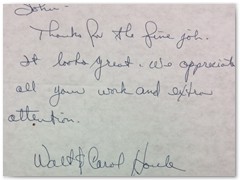 John -
Thanks for the fine job.
It looks great. We appreciate
all your work and extra
attention.
Walt & Carol